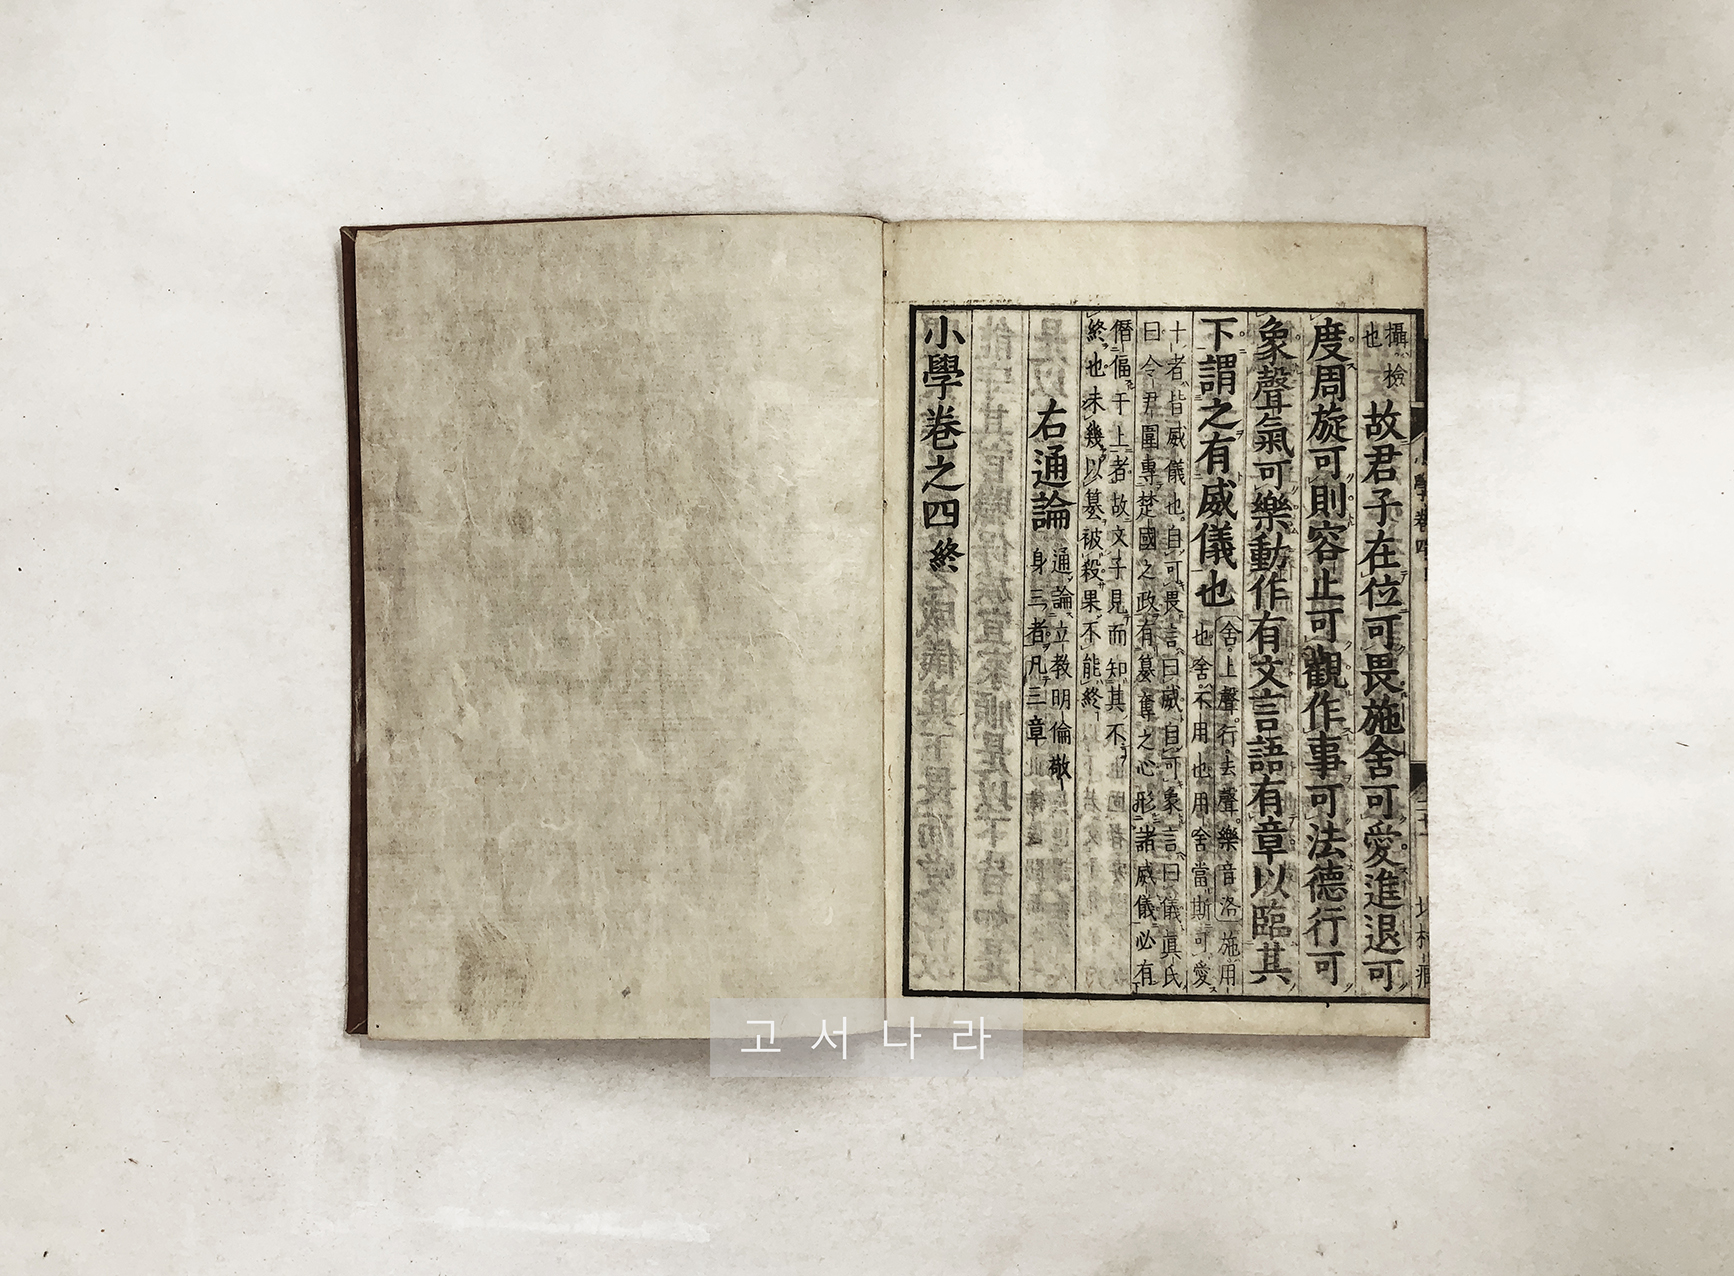 攝檢
也
故君子在位可畏施舍可愛進退可
度周旋可則容止可觀作事可法德行可
象聲氣可樂動作有文言語有章以臨其
下謂之有威儀也
舍上聲行去聲樂音洛施用
也舍不用也用舍當斯可愛
十者皆威儀也自可畏言曰威自可象言曰儀眞氏
曰令尹圍專楚國之政有簒奪之心形諸威儀必有
僭偪于上者故文子見而知其不
終也未幾以簒被殺果不能終
右通論
通論立敎明倫敬
身三者凡三章
小學卷之四終
고서나라